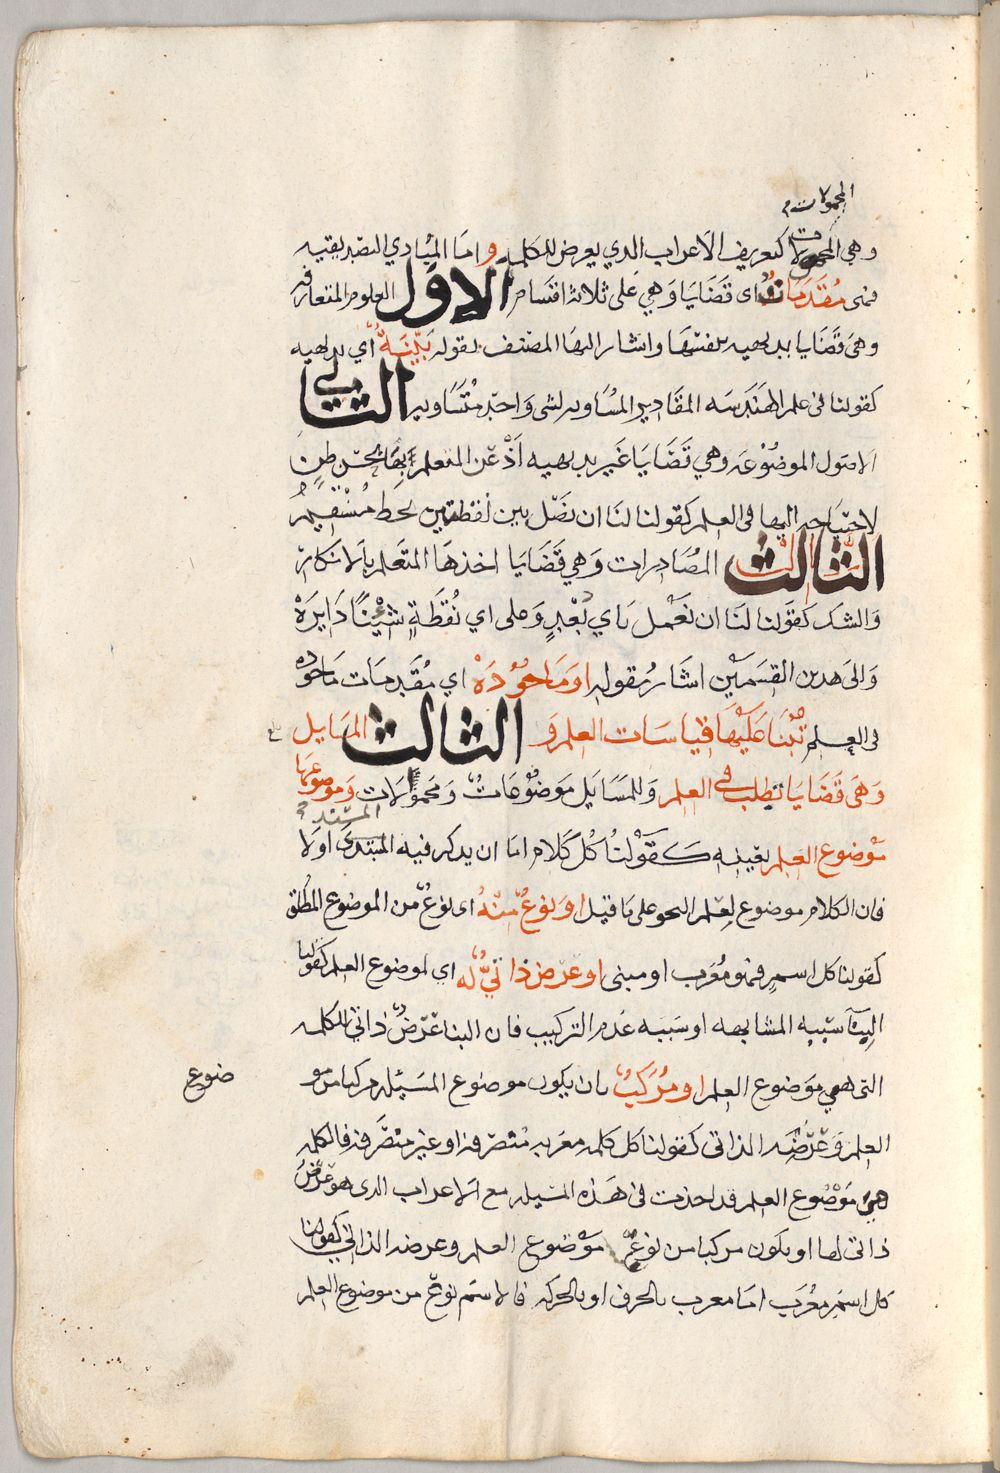 المحمولات
وهي المحمولات كتعريف الاعراب الدي يعرض للكلمه واما المبادي التصديقيه
فهى مقدمات اى قضايا وهي على ثلاثة اقسام الاول العلوم المتعارفه
وهى قضايا بديهيه بنفسها واشار اليها المصنف بقوله بينة اي بديهيه
كقولنا فى علم الهندسه المقادير المساويه لشى واحد متساويه الثاني
الاصول الموضوعه وهي قضايا غير بديهيه اذعن المتعلم بها بحسن ظن
لاحتياجه اليها فى العلم كقولنا لنا ان نصل بين نقطتين بخط مستقيم
الثالث المصادرات وهي قضايا اخذها المتعلم بالانكار
والشك كقولنا لنا ان نعمل باي بعد وعلى اي نقطة شينا دايرة
والى هدين القسمين اشار بقوله او ماخوذة اي مقدمات ماخوده
فى العلم تبنا عليها قياسات العلم و الثالث المسايل
وهى قضايا تطلب فى العلم وللمسايل موضوعات ومحمولات وموضوعها
المسند
موضوع العلم بعينه كقولنا كل كلام اما ان يدكر فيه المبتدى اولا
فان الكلام موضوع لعلم النحو على ما قيل او نوع منه اى نوع من الموضوع المطلق
كقولنا كل اسم فهو معرب او مبنى او عرض ذاتي له اي لموضوع العلم كقولنا
البنآ سببه المشابهه او سببه عدم التركيب فان البنا عرض ذاتي للكلمه
التى هي موضوع العلم او مركب بان يكون موضوع المسيله مركبا من مو
ضوع
العلم وعرضه الذاتى كقولنا كل كلمه معربه منصرفه او غير منصرفه فالكلمه
هي موضوع العلم قد اخذت فى هذه المسيله مع الاعراب الدى هو عرض
ذاتى لها او يكون مركبا من نوع موضوع العلم وعرضه الذاتي كقولنا
كل اسم معرب اما معرب بالحرف او بالحركه فالاسم نوع من موضوع العلم